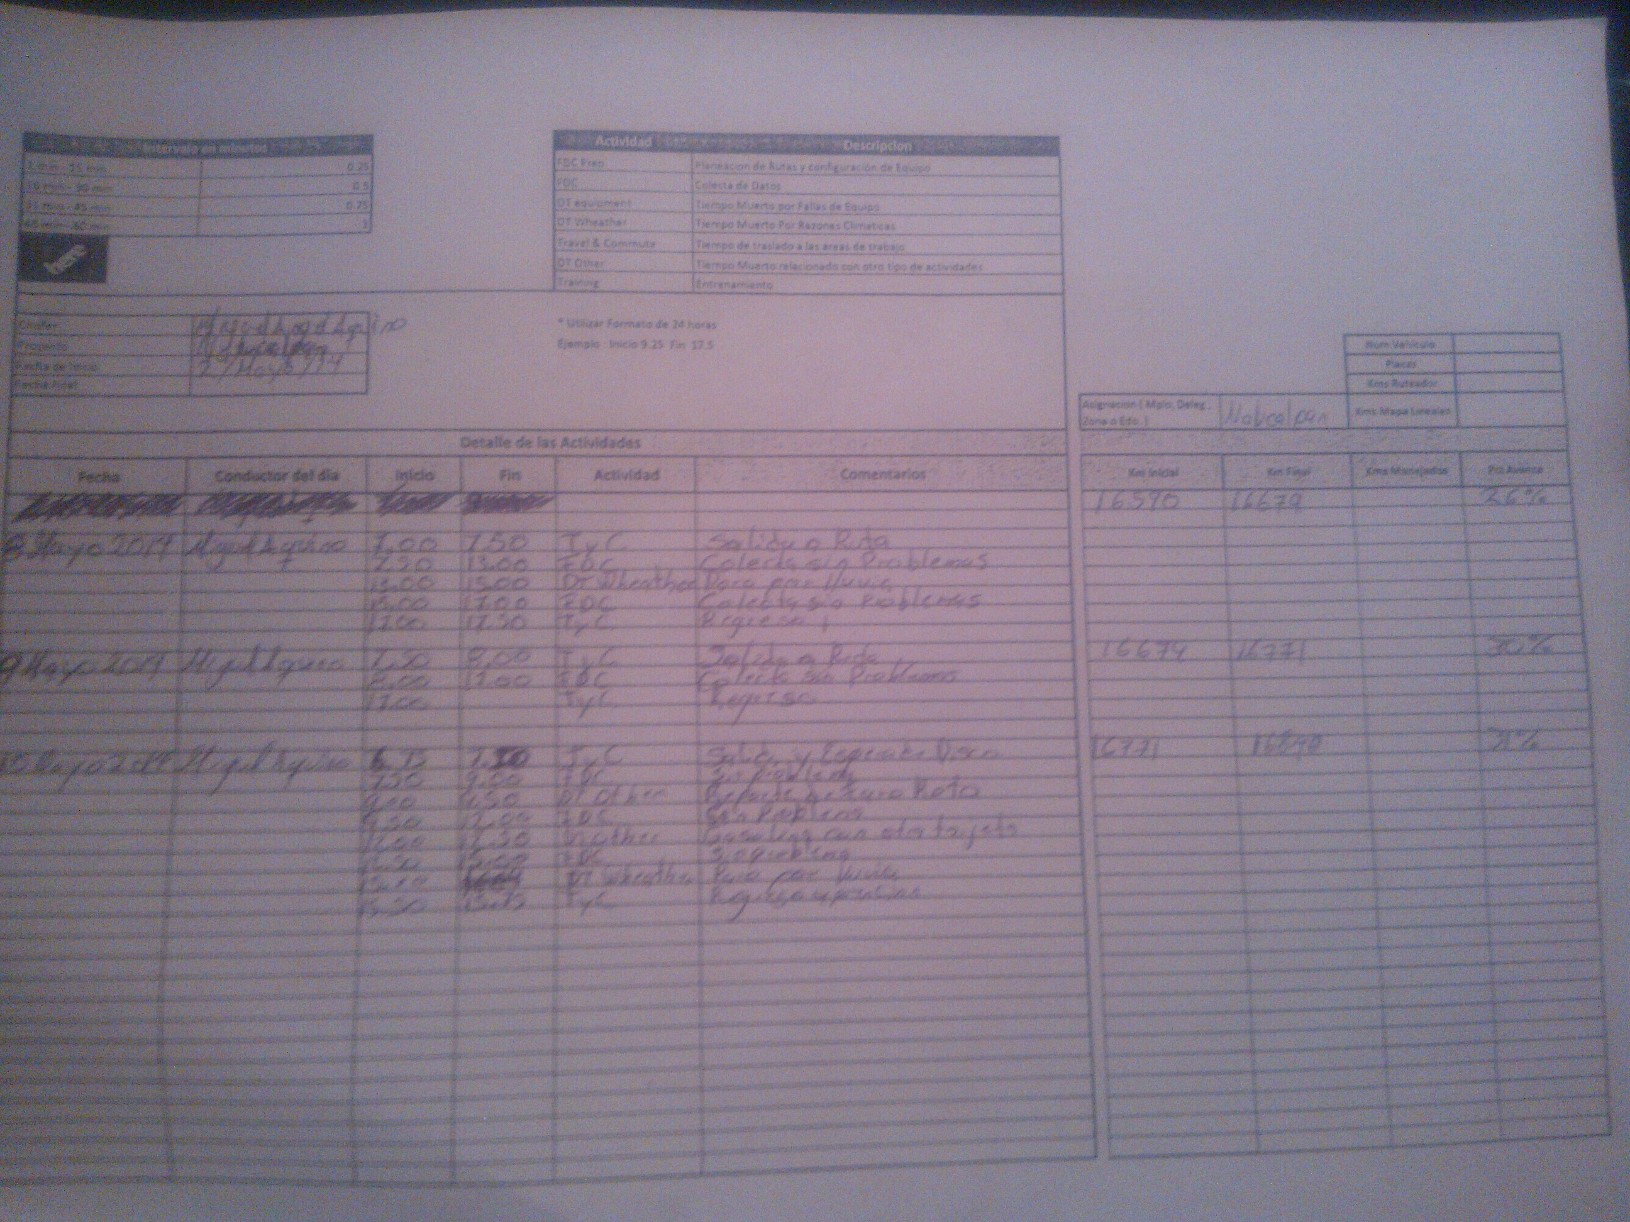 Intervalo en minutos
1 min - 15 min 0.25
16 min - 30 min 0.5
31 min - 45 min 0.75
46 min - 60 min 1
Actividad Descripcion
FDC Prep Planeacion de Rutas y configuración de Equipo
FDC Colecta de Datos
DT equipment Tiempo Muerto por Fallas de Equipo
DT Wheather Tiempo Muerto Por Razones Climaticas
Travel & Commute Tiempo de traslado a las areas de trabajo
DT Other Tiempo Muerto relacionado con otro tipo de actividades
Training Entrenamiento
Chofer Aquino
Proyecto Naucalpan
Fecha de Inicio
Fecha Final
* Utilizar Formato de 24 horas
Ejemplo : Inicio 9.25 Fin 17.5
Num Vehiculo
Placas
Kms Ruteador
Asignacion ( Mpio, Deleg., Zona o Edo. ) Naucalpan Kms Mapa Lineales
Detalle de las Actividades
Fecha Conductor del día Inicio Fin Actividad Comentarios Km Inicial Km Final Kms Manejados Pro Avance
16590 26%
8 Mayo 2014 Miguel Aquino 7.00 7.50 TyC Salida a Ruta
7.50 13.00 FDC Colecta sin Problemas
13.00 15.00 DT Wheather por lluvia
15.00 17.00 FDC Colecta sin Problemas
17.00 17.50 TyC Regreso
9 Mayo 2014 Miguel Aquino 7.50 8.00 TyC Salida a Ruta 16674 16771 30%
8.00 17.00 FDC Colecta sin Problemas
17.00 TyC Regreso
10 Mayo 2014 Miguel Aquino 6.75 7.50 TyC Salida y 16771 31%
7.50 9.00 FDC Sin problema
9.00 9.50 DT Other
9.50 12.00 FDC Sin Problema
12.00 12.50 DT Other Gasolina con otra tarjeta
12.50 15.00 FDC Sin problema
DT Wheather Paro por lluvia
15.50 TyC Regreso